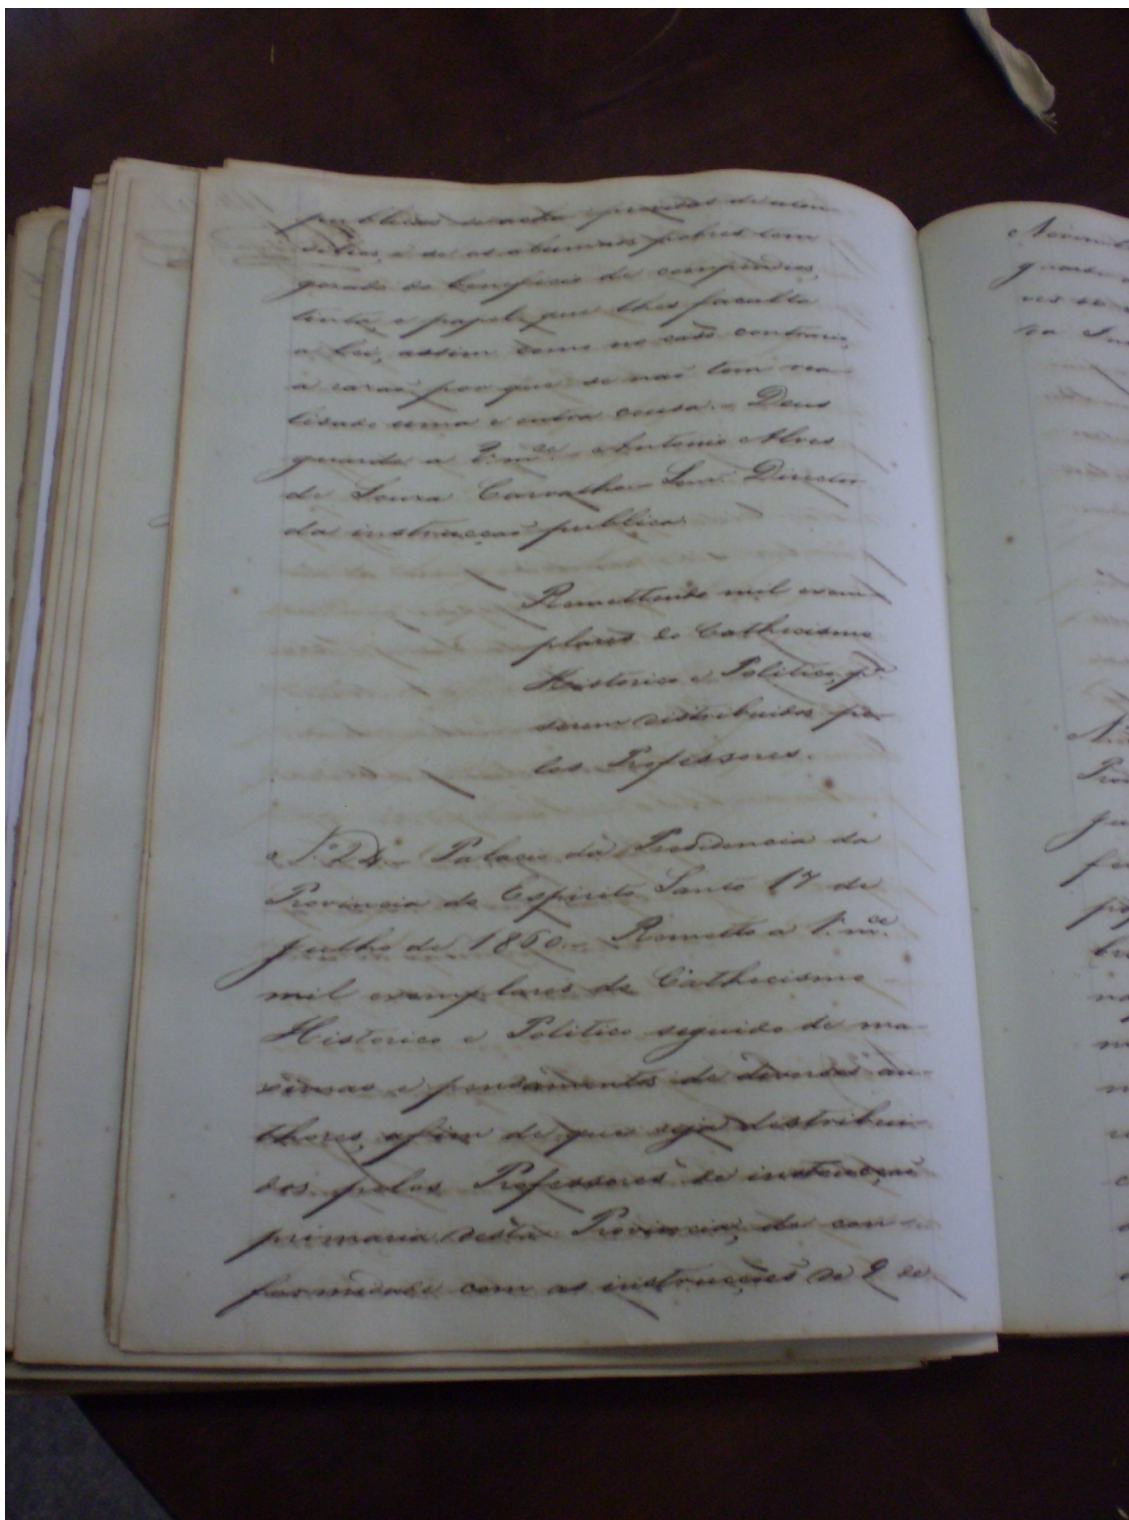 publica se acha providas de uten
cilios, e se os alumnos pobres tem
gosado do beneficio de compendios,
tinta, e papel, que lhes faculta
a Lei, assim como no caso contrario,
a rasaõ por que se naõ tem rea
lisado uma e outra cousa. - Deus
guarde a V.mce. - Antonio Alves
de Souza Carvalho - Snr. Director
da instrucçaõ publica.
Remettendo mil exem
plares do Cathecismo
Historico e Politico, pa.
serem distribuidos pe
los Professores.
N.º 24 - Palacio da Presidencia da
Provincia do Espirito Santo 17 de
Julho de 1860. - Remetto a V.mce.
mil exemplares do Cathecismo
Historico e Politico seguido de ma
ximas e pensamentos de diversos au
thores, afim de que seja distribui
dos pelos Professores de instrucçaõ
primaria desta Provincia, de con
formidade com as instrucções de 2 de